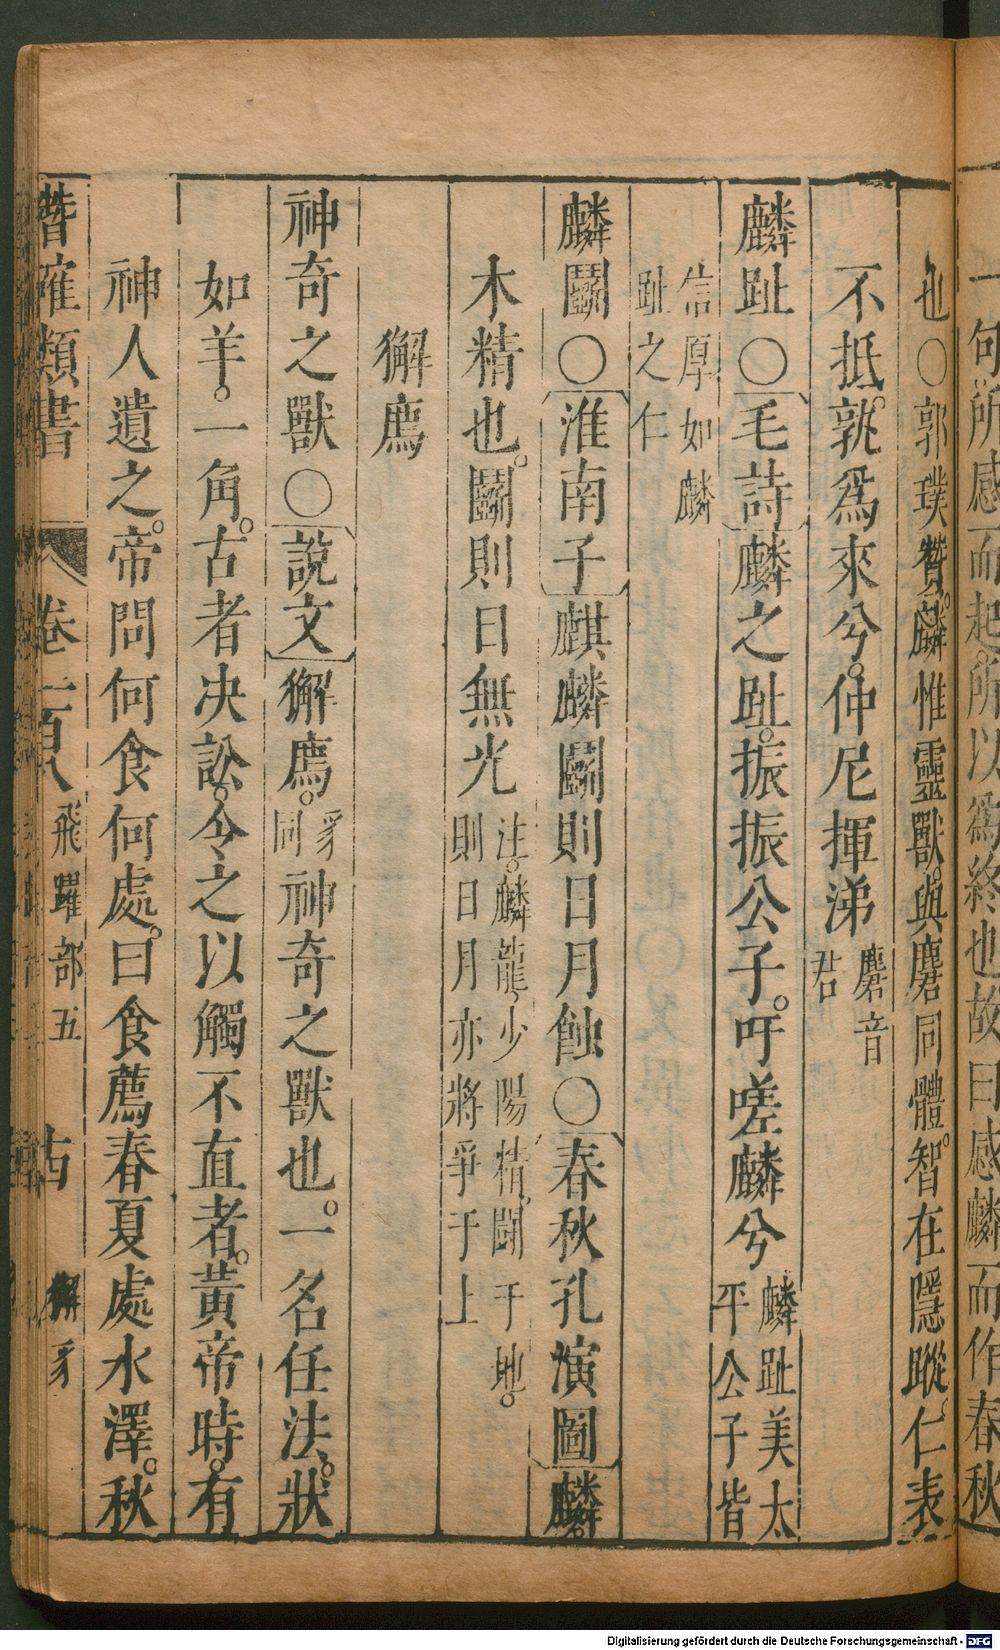 一句所感而起所以爲終也故曰感麟而作春秋
也○郭璞贊麟惟靈獸與麏同體智在隱蹤仁表
不抵孰爲來兮仲尼揮涕麏音君
麟趾○毛詩麟之趾振振公子吁嗟麟兮麟趾美太平公子皆
信厚如麟趾之仁
麟鬭○淮南子麒麟鬭則日月蝕○春秋孔演圖麟
木精也鬭則日無光注麟龍少陽精鬭于地則日月亦將爭于上
獬廌
神奇之獸○說文獬廌豸同神奇之獸也一名任法狀
如羊一角古者決訟令之以觸不直者黃帝時有
神人遺之帝問何食何處曰食薦春夏處水澤秋
潛確類書 卷一百八 飛躍部五 古 獬豸
Digitalisierung gefördert durch die Deutsche Forschungsgemeinschaft - DFG